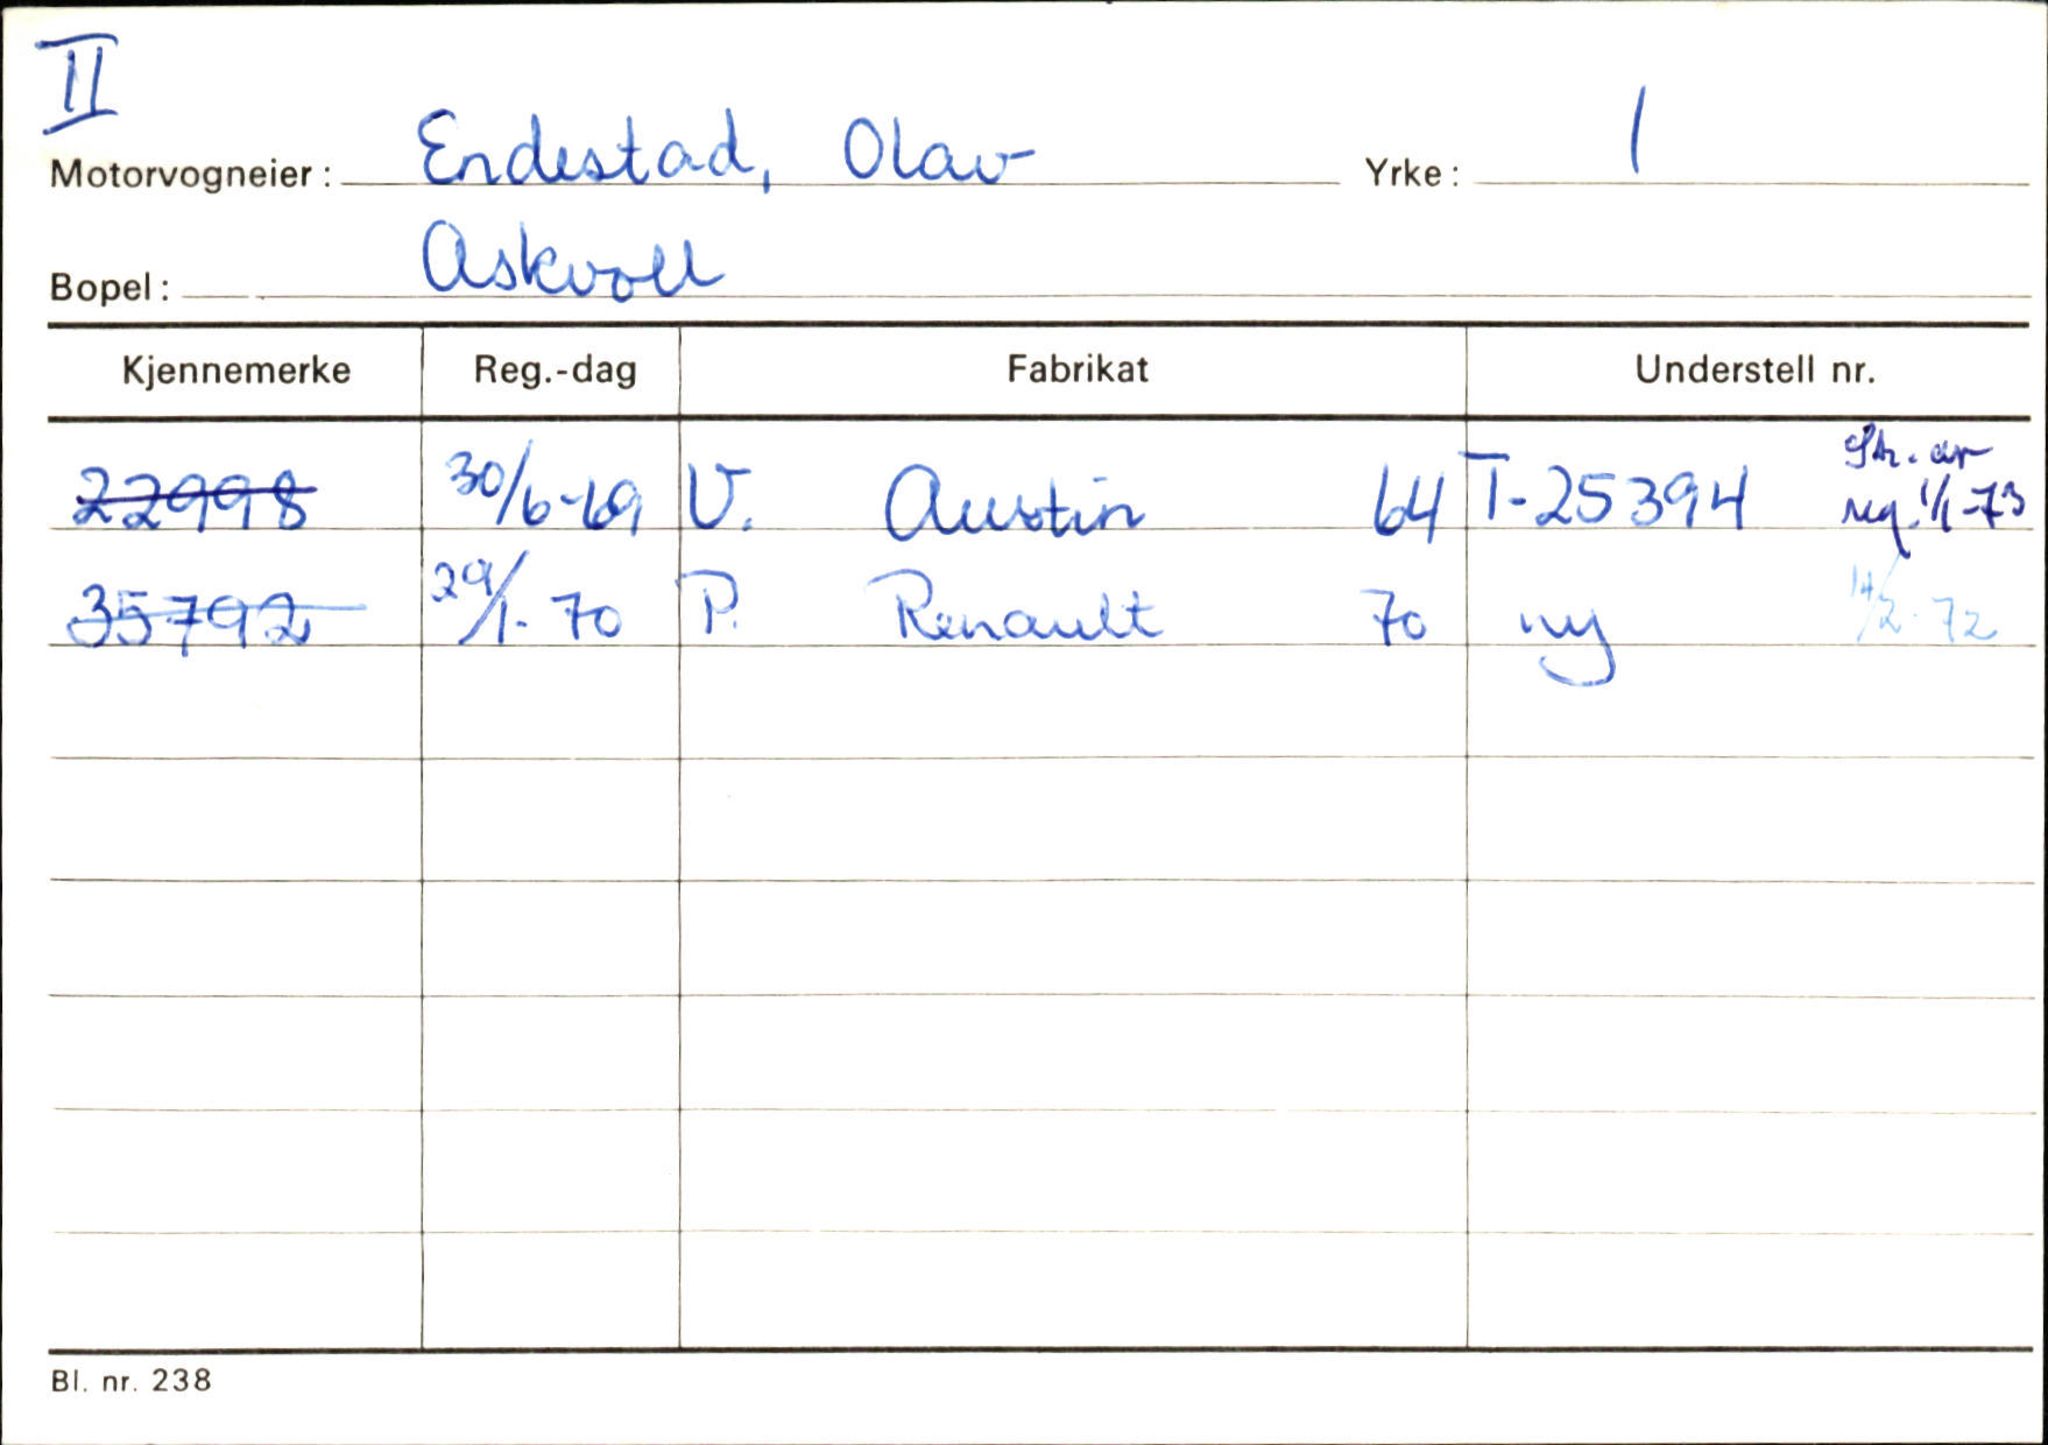 II
Motorvogneier: Endestad, Olav Yrke: 1
Bopel: Askvoll
Kjennemerke Reg.-dag Fabrikat Understell nr.
Str. av
22998 30/6-69 V. Austin 64 T-25394 reg. 1/1-73
35792 29/1-70 P. Renault 70 ny 14/2-72
Bl. nr. 238